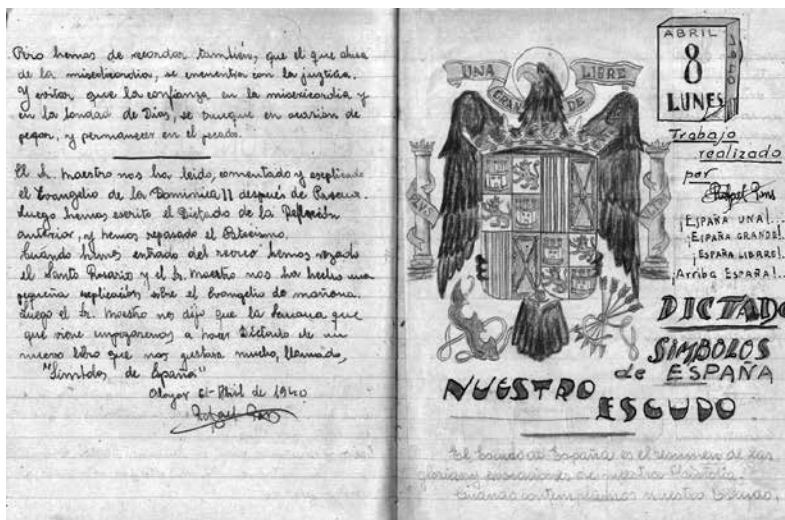 Pero hemos de recordar también, que el que abusa
de la misericordia, se encuentra con la justicia.
Y evitar que la confianza en la misericordia y
en la bondad de Dios, se busque en ocasión de
pegar, y permanecer en el pecado.
El Sr. Maestro nos ha leido, comentado y esplicado
el Evangelio de la Dominica II después de Pascua.
Luego hemos escrito el Dictado de la Reflexión
anterior, y hemos repasado el Catecismo.
Cuando hemos entrado del recreo hemos rezado
el Santo Rosario y el Sr. Maestro nos ha hecho una
pequeña esplicación sobre el Evangelio de mañana.
Luego el Sr. Maestro nos dijo que la semana que
que viene empezaremos a hacer Dictado de un
nuevo libro que nos gustara mucho, llamado,
"Símbolos de España"
6-Abril de 1940
Rafael Pons
UNA
GRANDE
LIBRE
PLVS
ABRIL
8
LUNES
1940
Trabajo
realizado
por
Rafael Pons
¡ESPAÑA UNA!...
¡ESPAÑA GRANDE!
¡ESPAÑA LIBRE!
¡Arriba ESPAÑA!..
DICTADO
SIMBOLOS
de ESPAÑA
NUESTRO
ESCUDO
El Escudo de España es el resumen de las
glorias y de nuestra Historia.
Cuando contemplamos nuestro Escudo,